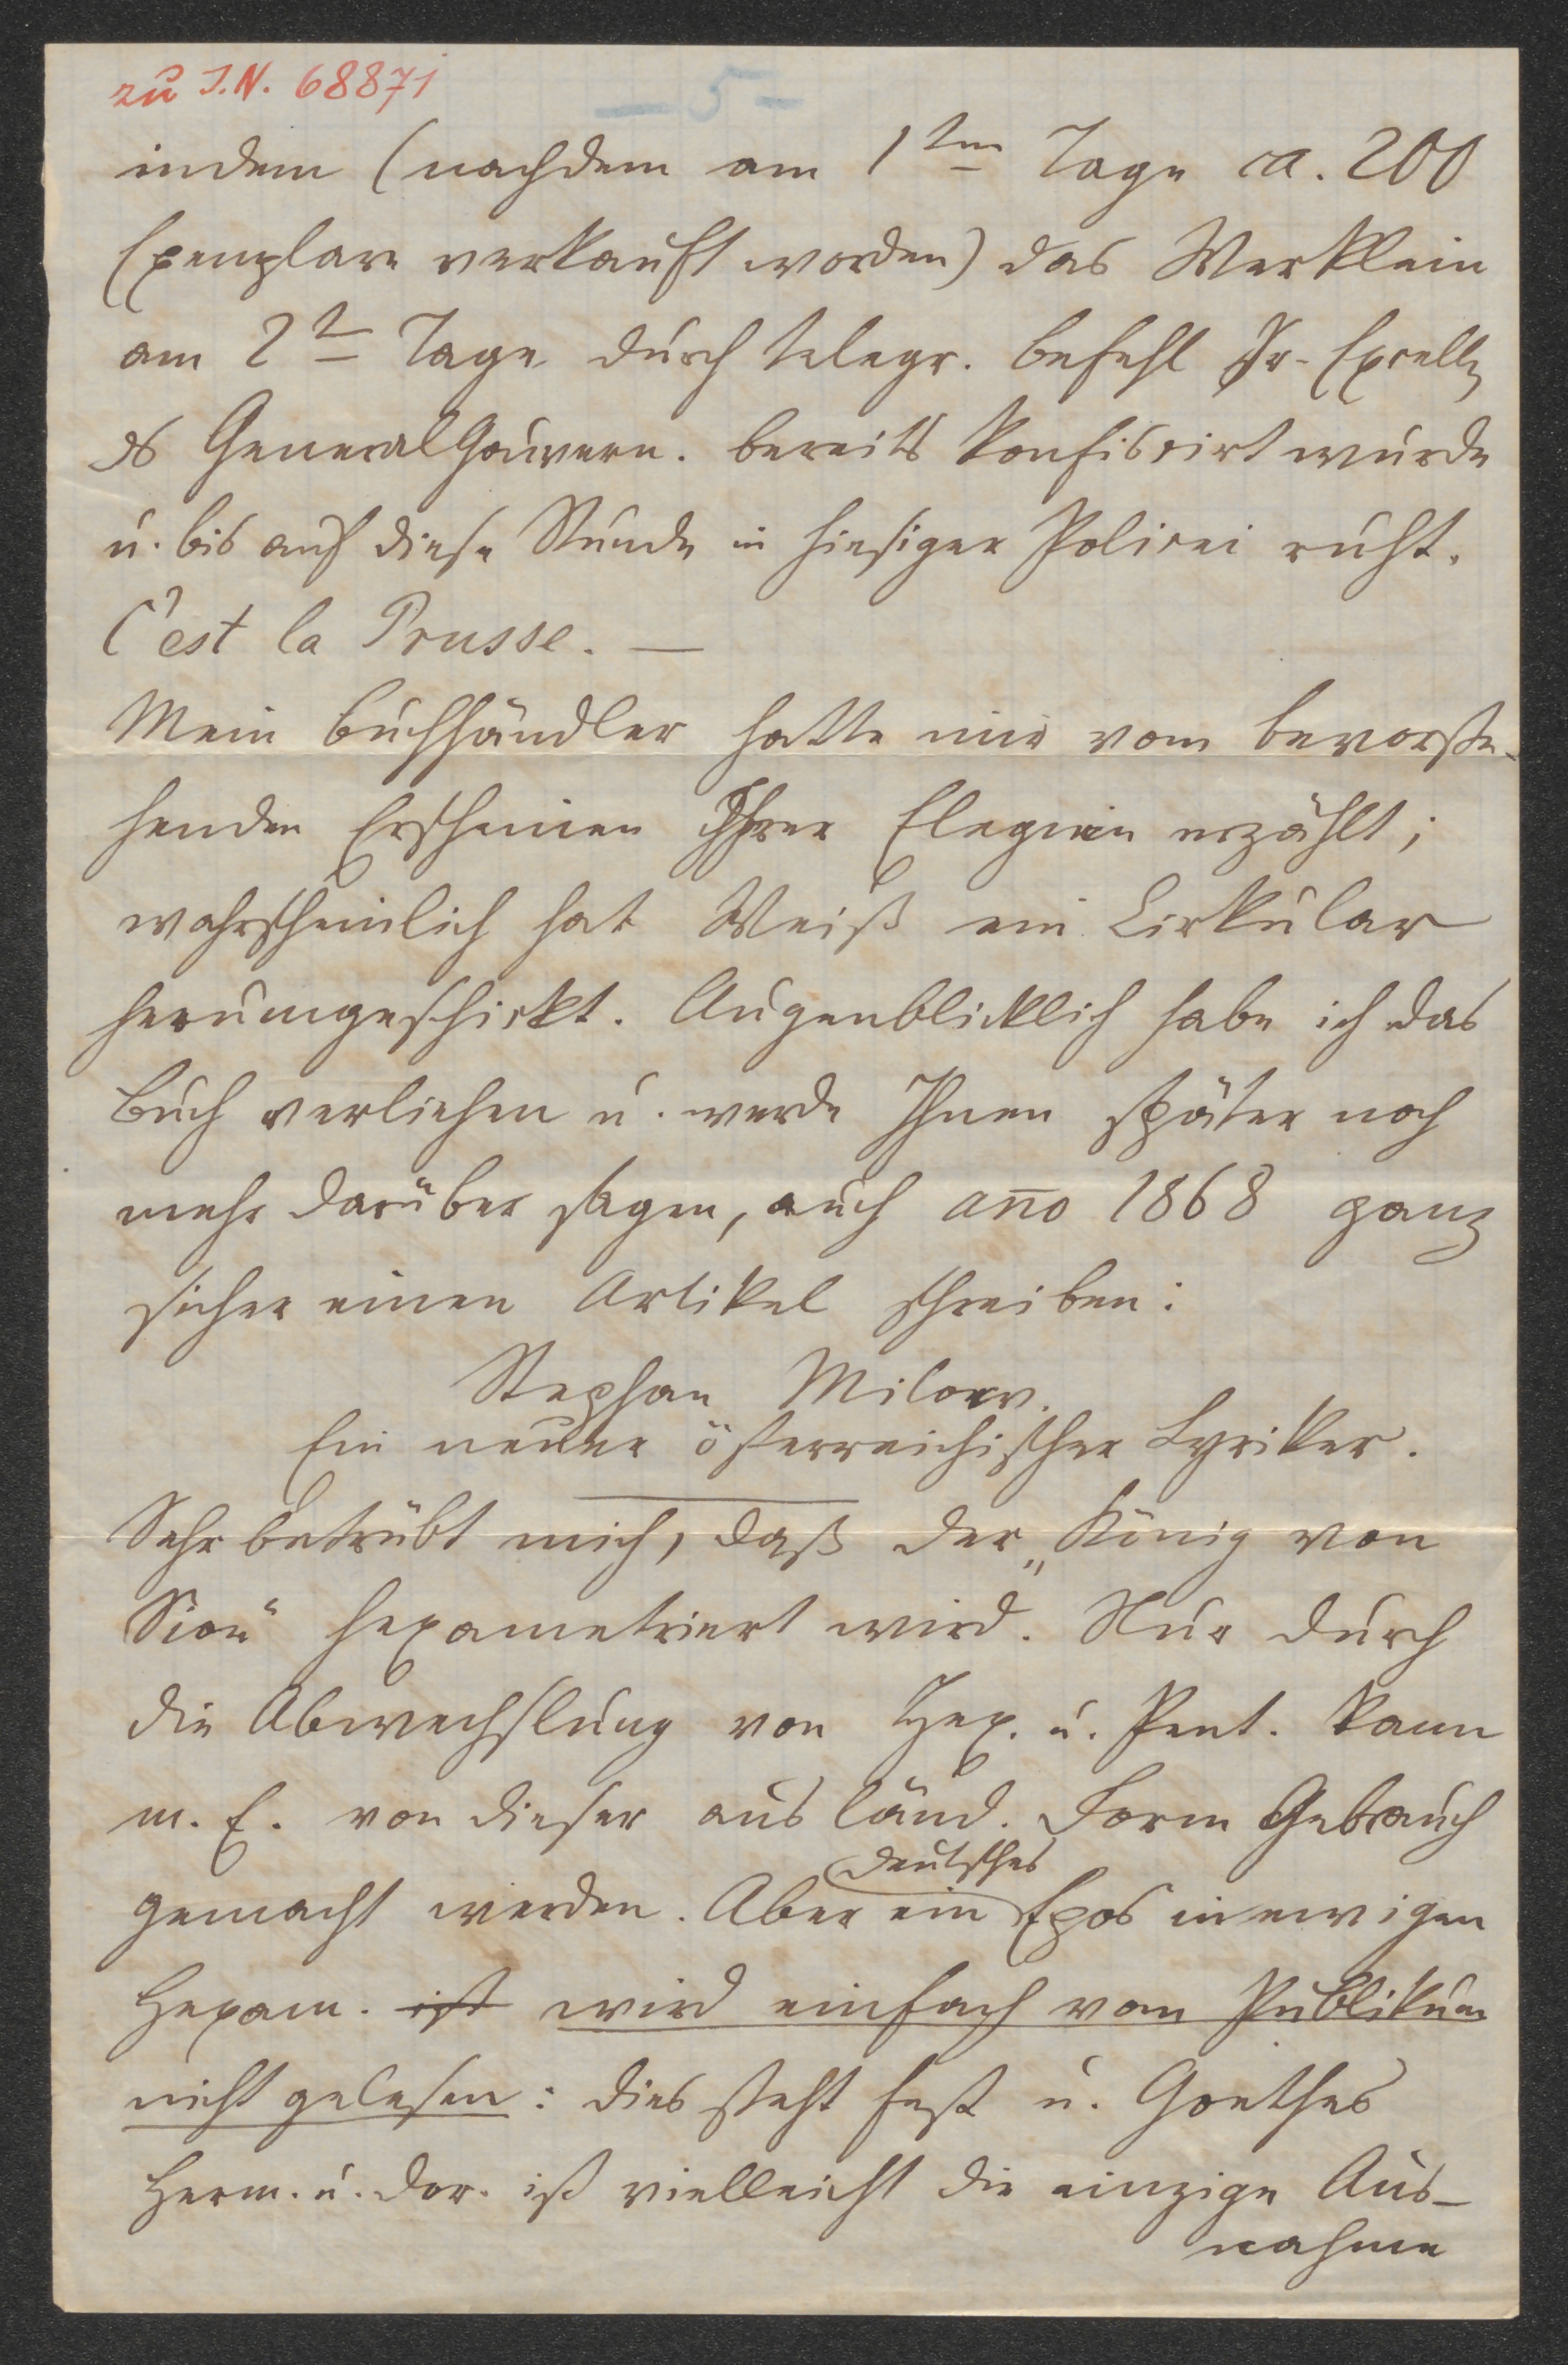 zu I.N. 68871
— 5 —
indem (nachdem am 1ten Tage ca. 200
Exemplare verkauft worden) das Werklein
am 2t Tage durch telegr. Befehl Sr. Excellz
ds GeneralGouvern. bereits konfiscirt wurde
u. bis auf diese Stunde in hiesiger Polizei ruht.
C'est la Prusse. —
Mein Buchhändler hatte mir vom bevorste-
henden Erscheinen Ihrer Elegien erzählt;
wahrscheinlich hat Weiß ein Cirkular
herumgeschickt. Augenblicklich habe ich das
Buch verliehen u. werde Ihnen später noch
mehr darüber sagen, auch ano 1868 ganz
sicher einen Artikel schreiben:
Stephan Milow.
Ein neuer österreichischer Lyriker.
Sehr betrübt mich, daß der „König von
Sion“ hexametriert wird. Nur durch
die Abwechslung von Hex. u. Pent. kann
m. E. von dieser ausländ. Form Gebrauch
gemacht werden. Aber ein deutsches Epos in ewigen
Hexam. ist wird einfach vom Publikum
nicht gelesen: dies steht fest u. Goethes
Herm. u. Dor. ist vielleicht die einzige Aus-
nahme